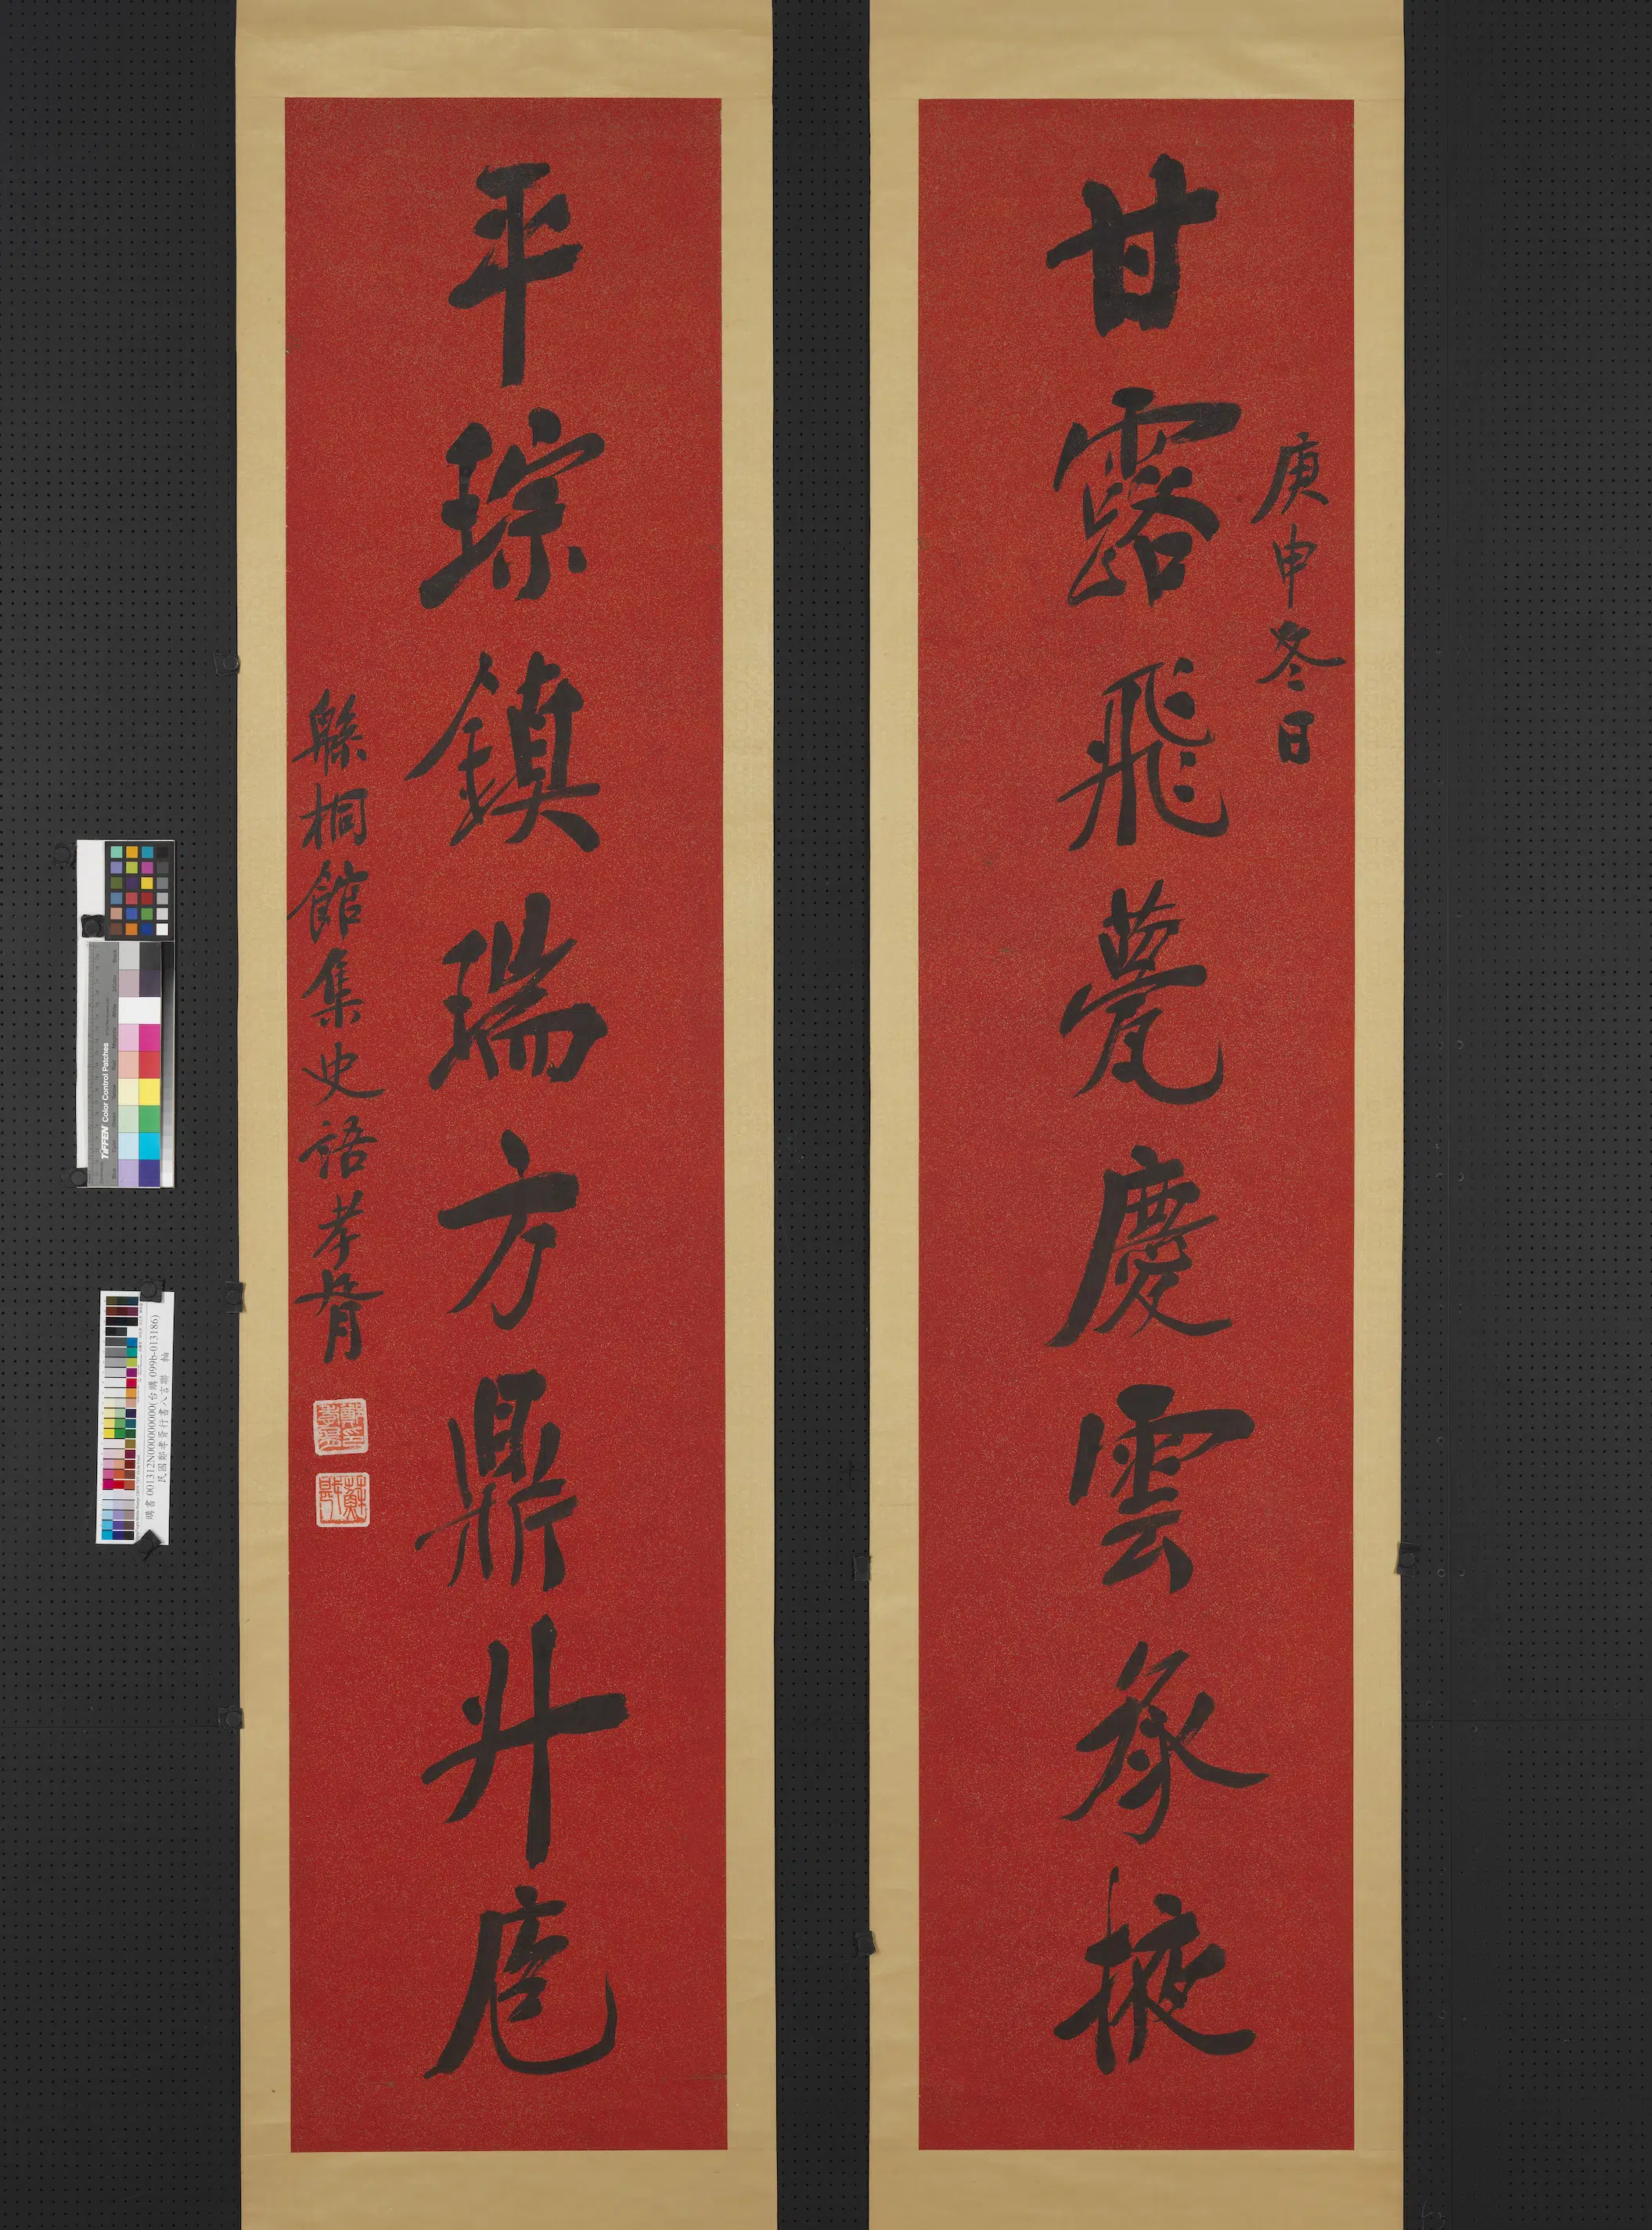 庚申冬日
甘露飛甍慶雲承掖
平琮鎮瑞方鼎升庖
緜桐館集史語孝胥
鄭孝胥印
蘇戡
購書 001312N000000000(台購 099b-013186)
民國鄭孝胥行書八言聯 軸
TIFFEN Color Control Patches